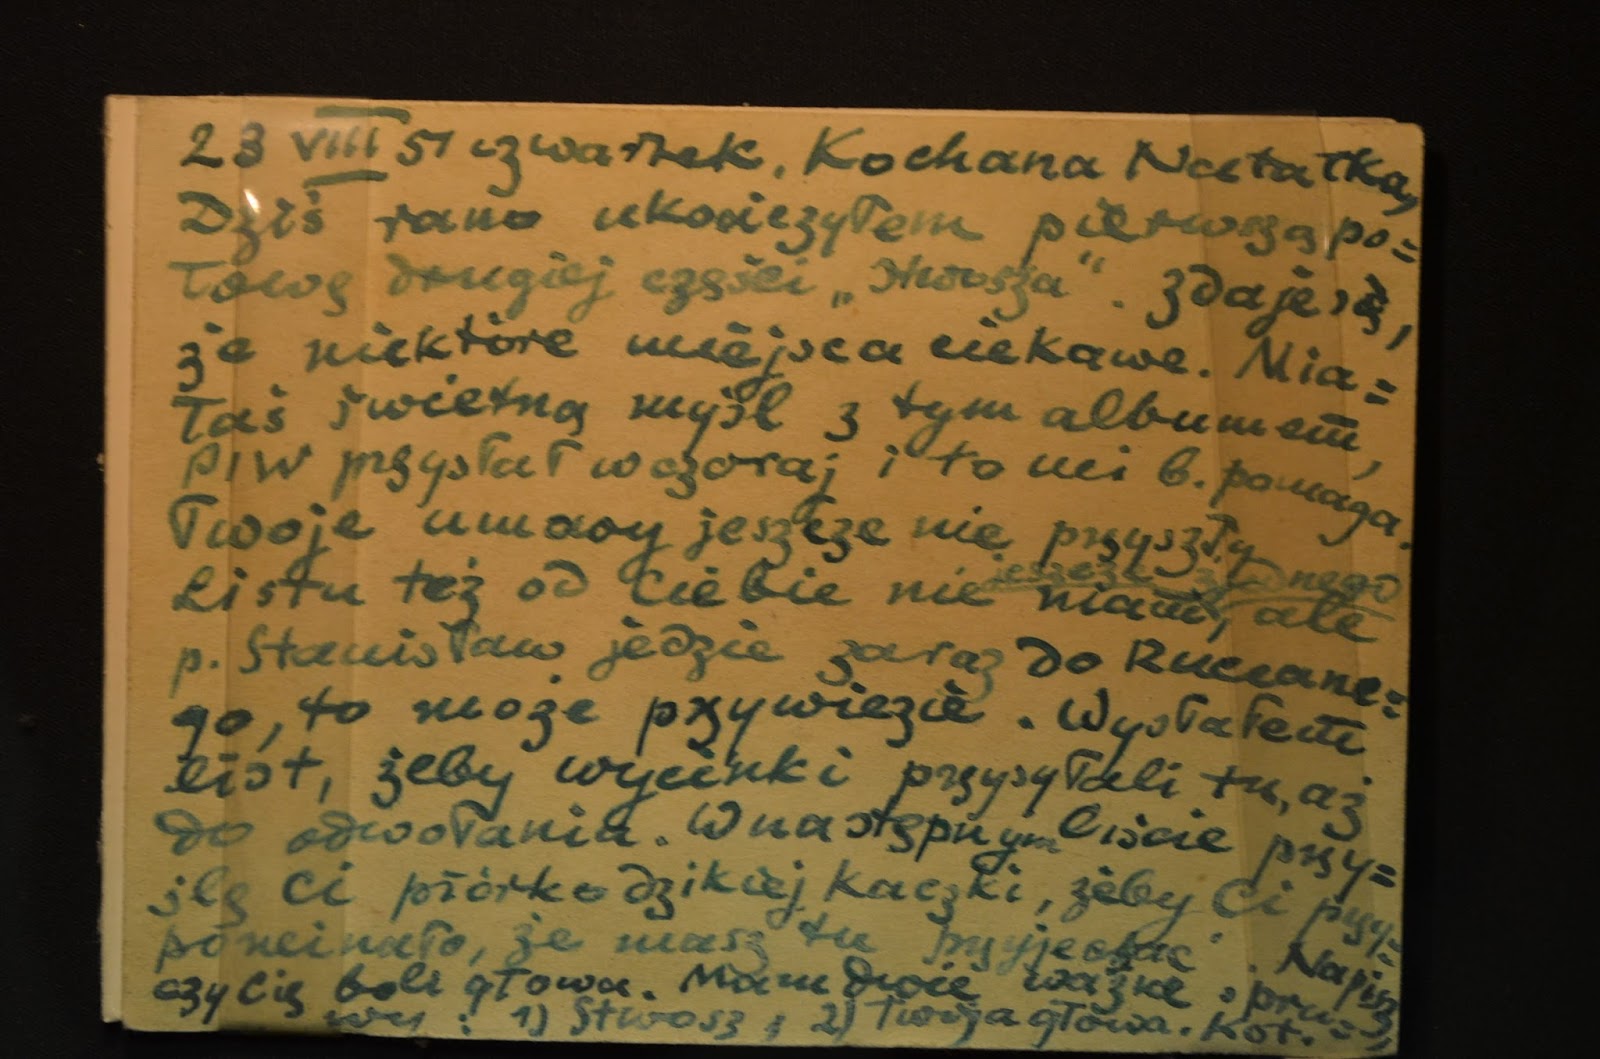 23 VIII 51 czwartek. Kochana Natalka,
Dziś rano ukończyłem pierwszą po=
łowę drugiej części „Stwosza". Zdaje się,
że niektóre miejsca ciekawe. Mia=
łaś świetną myśl z tym albumem,
PIW przysłał wczoraj i to mi b. pomaga.
Twoje umowy jeszcze nie przyszły
jeszcze żadnego
Listu też od Ciebie nie mam, ale
p. Stanisław jedzie zaraz do Ruciane=
go, to może przywiezie. Wysłałem
list, żeby wycinki przysyłali tu, aż
do odwołania. W następnym liście przy=
ślę Ci piórko dzikiej kaczki, żeby Ci przy=
pominało, że masz tu przyjechać. Napisz,
czy Cię boli głowa. Mam dwie ważne spra=
wy: 1) Stwosz, 2) Twoja głowa. Kot.